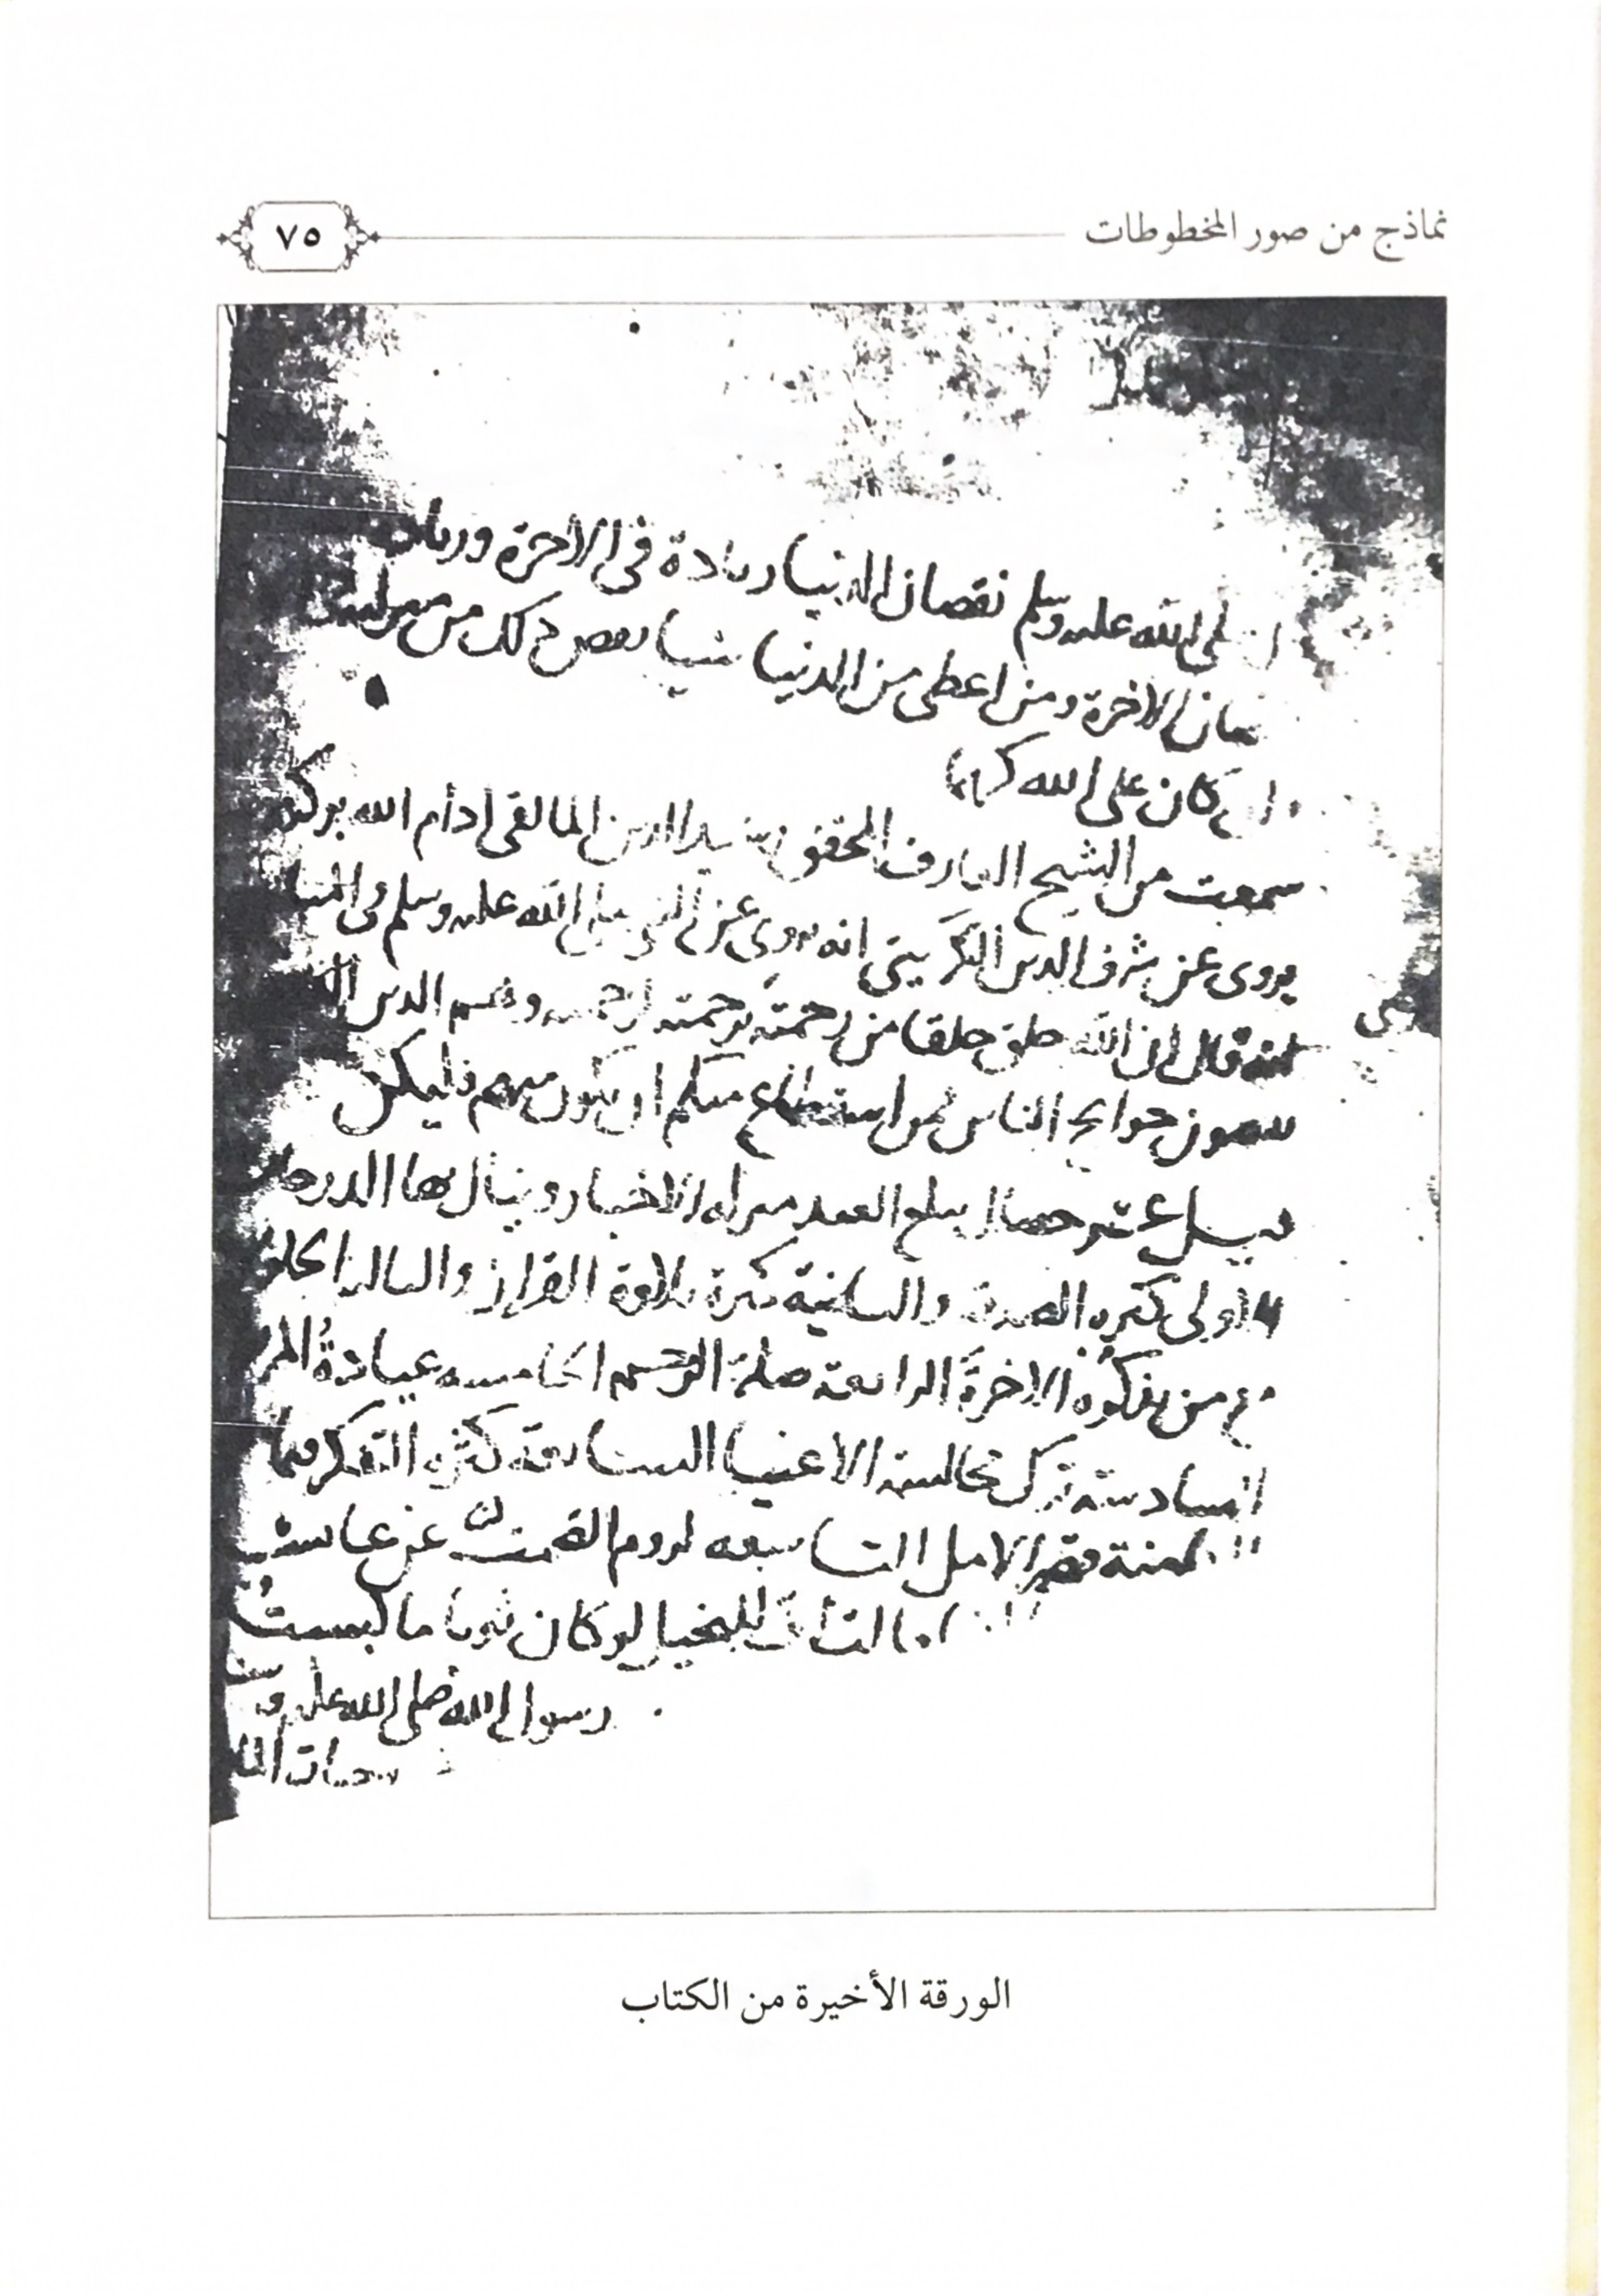 نماذج من صور المخطوطات
٧٥
صلى الله علىه وسلم نقصان الدنيا زيادة فى الاخرة وزيادة
الاخرة ومن اعطى من الدنيا شيا نقص ذلك من منزلته
كان على الله كريما
سمعت من الشيخ العارف المحقق سيد الدين المالقى أدام الله بركته
يروى عن شرف الدين التكريتى انه يروى عن النبى صلى الله عليه وسلم فى المنا
قال ان الله خلق خلقا من رحمته برحمته لرحمته وهم الذين
حوايج الناس فمن استطاع منكم ان يكون منهم فليكن
قيل عشر خصال يبلغ العبد منزلة الاخيار وينال بها الدرجا
الاولى كثرة الصدقة والثانية كثرة تلاوة القران والثالثة الجلو
مع من يذكره الاخرة الرابعة صلة الرحم الخامسة عيادة المر
السادسة ترك مخالسة الاغنيا السابعة كثرة التفكر فيما
قصر الامل التاسعة لزوم الصمت عن عاىشة
للبخيل لو كان ثوبا ما لبست
رسول الله صلى الله عليه و
الورقة الأخيرة من الكتاب